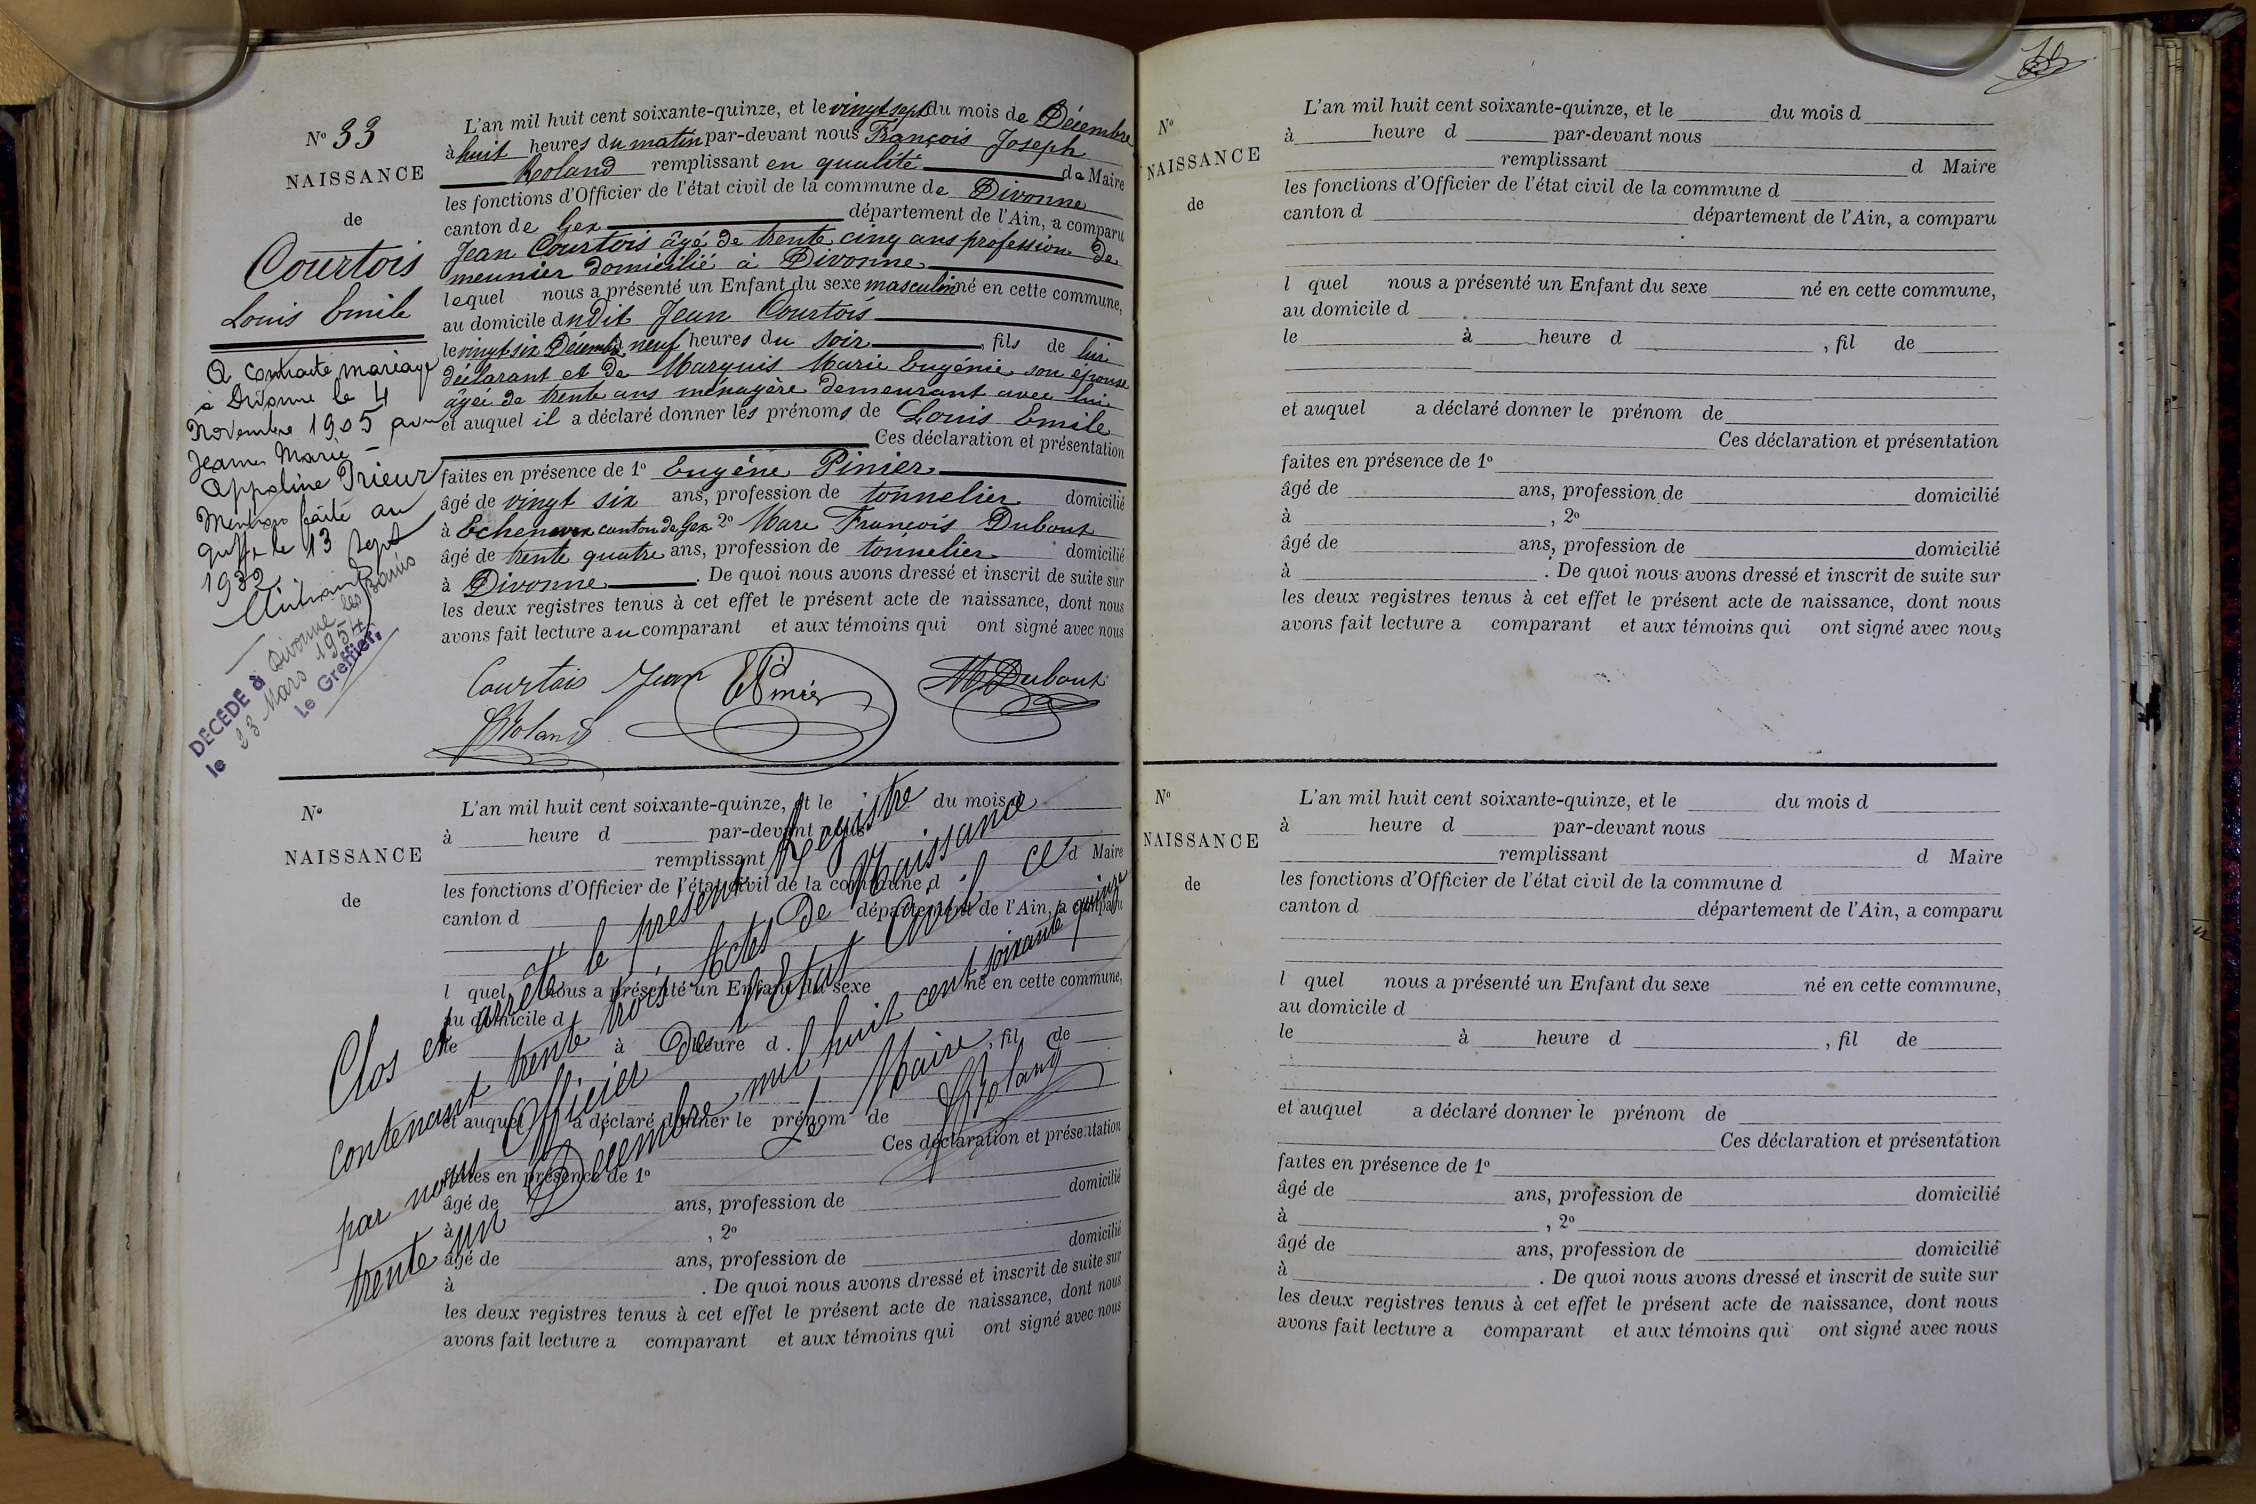 N° 33
NAISSANCE
de
Courtois
Louis Emile
A contracté mariage
à Divonne le 4
Novembre 1905 avec
Jeanne Marie
Appoline Prieur
Mention faite au
greffe le 13 Sept
1932
DÉCÉDÉ à Divonne les Bains
le 23 Mars 1954
Le Greffier,
L'an mil huit cent soixante-quinze, et le vingt sept du mois de Décembre
à huit heures du matin par-devant nous François Joseph
Roland remplissant en qualité de Maire
les fonctions d'Officier de l'état civil de la commune de Divonne
canton de Gex département de l'Ain, a comparu
Jean Courtois âgé de trente cinq ans profession de
meunier domicilié à Divonne
lequel nous a présenté un Enfant du sexe masculin né en cette commune,
au domicile dudit Jean Courtois
le vingt six Décembre neuf heures du soir, fils de lui
déclarant et de Marquis Marie Eugénie son épouse
âgée de trente ans ménagère demeurant avec lui
et auquel il a déclaré donner les prénoms de Louis Emile
Ces déclaration et présentation
faites en présence de 1° Eugéne Pinier
âgé de vingt six ans, profession de tonnelier domicilié
à Echenevex canton de Gex 2° Marc François Dubout
âgé de trente quatre ans, profession de tonnelier domicilié
à Divonne. De quoi nous avons dressé et inscrit de suite sur
les deux registres tenus à cet effet le présent acte de naissance, dont nous
avons fait lecture au comparant et aux témoins qui ont signé avec nous
Courtois Jean EPinier MDubout
JRoland
N°
NAISSANCE
de
L'an mil huit cent soixante-quinze, et le du mois d
à heure d par-devant nous
remplissant d Maire
les fonctions d'Officier de l'état civil de la commune d
canton d département de l'Ain, a comparu
l quel nous a présenté un Enfant du sexe né en cette commune,
au domicile d
le à heure d , fil de
et auquel a déclaré donner le prénom de
Ces déclaration et présentation
faites en présence de 1°
âgé de ans, profession de domicilié
à , 2°
âgé de ans, profession de domicilié
à . De quoi nous avons dressé et inscrit de suite sur
les deux registres tenus à cet effet le présent acte de naissance, dont nous
avons fait lecture a comparant et aux témoins qui ont signé avec nous
Clos et arrêté le présent Registre
contenant trente trois Actes De Naissance
par nous Officier De l'Etat Civil ce
trente un Décembre mil huit cent soixante quinze
Le Maire
JRoland
N°
NAISSANCE
de
L'an mil huit cent soixante-quinze, et le du mois d
à heure d par-devant nous
remplissant d Maire
les fonctions d'Officier de l'état civil de la commune d
canton d département de l'Ain, a comparu
l quel nous a présenté un Enfant du sexe né en cette commune,
au domicile d
le à heure d , fil de
et auquel a déclaré donner le prénom de
Ces déclaration et présentation
faites en présence de 1°
âgé de ans, profession de domicilié
à , 2°
âgé de ans, profession de domicilié
à . De quoi nous avons dressé et inscrit de suite sur
les deux registres tenus à cet effet le présent acte de naissance, dont nous
avons fait lecture a comparant et aux témoins qui ont signé avec nous
N°
NAISSANCE
de
L'an mil huit cent soixante-quinze, et le du mois d
à heure d par-devant nous
remplissant d Maire
les fonctions d'Officier de l'état civil de la commune d
canton d département de l'Ain, a comparu
l quel nous a présenté un Enfant du sexe né en cette commune,
au domicile d
le à heure d , fil de
et auquel a déclaré donner le prénom de
Ces déclaration et présentation
faites en présence de 1°
âgé de ans, profession de domicilié
à , 2°
âgé de ans, profession de domicilié
à . De quoi nous avons dressé et inscrit de suite sur
les deux registres tenus à cet effet le présent acte de naissance, dont nous
avons fait lecture a comparant et aux témoins qui ont signé avec nous